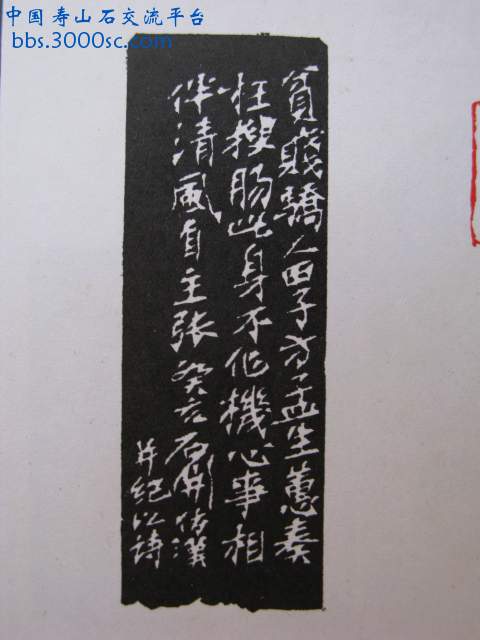 中国寿山石交流平台
bbs.3000sc.com
貧賤驕人田子方孟生蕙奏
枉搜肠此身不作機心事相
伴清風自主張癸亥石開仿漢
并紀以詩